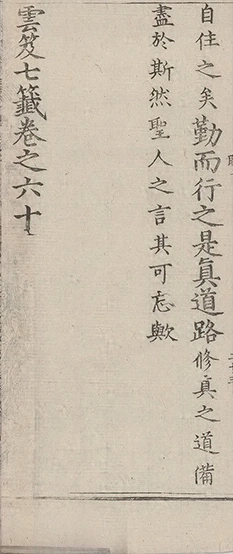 自住之矣勤而行之是眞道路修真之道備
盡於斯然聖人之言其可忘歟
雲笈七籤卷之六十